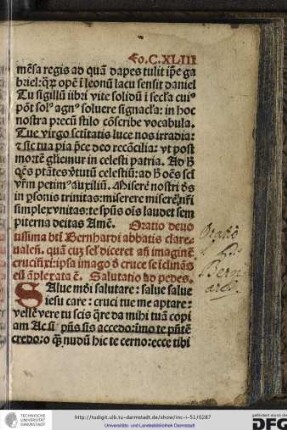 Fo.C.XLIII
mēsa regis ad quā dapes tulit ip̄e ga
briel: opē leonū lacu sensit daniel
Tu sigillū libri vite solidū i secla cui⁹
pōt sol⁹ agn⁹ soluere signacla: in hoc
nostra precū stilo cōscribe vocabula.
Tue virgo sctitatis luce nos irradia:
⁊ sic tua pia p̄ce deo recōciliar vt post
mortē gliemur in celesti patria. Ad
ptātes ꝟtutū celestiū: ad oēs
petim⁹ auxiliū. Miserē nostri
in psonis trinitas: miserere
simplex vnitas: te laudet sem
piterna deitas Amē. Oratio deuo
tissima btī Bernhardi abbatis clare
uaseñ. quā cuz sel diceret añ imaginē
crucifixi: ipsa imago d̄ cruce se īclināς
eū āplexata ē. Salutatio ad pedes.
SAlue mōi salutare: salue salue
iesu care: cruci tue me aptare:
vellē vere tu scis q̄re da mihi tuā copi
am Ac si p̄ns sis accedo: īmo te p̄ntē
credo: o hic te cerno: ecce tibi
Oratio
Bern
ardi
TECHNISCHE
UNIVERSITÄT
DARMSTADT
http://tudigit.ulb.tu-darmstadt.de/show/inc-i-51/0287
Universitäts- und Landesbibliothek Darmstadt
gefördert durch die
DFG